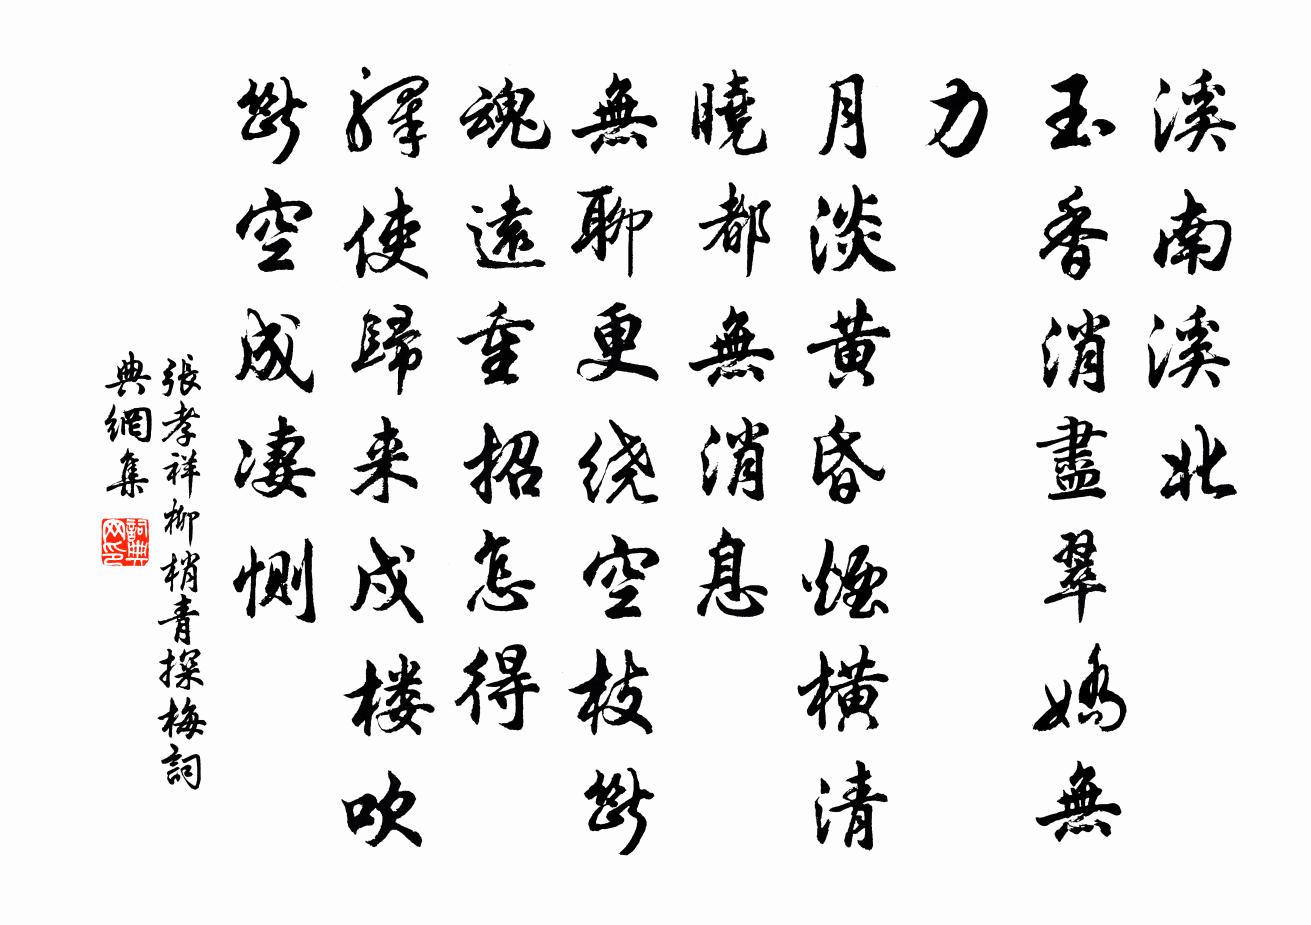 溪南溪北
玉香消盡翠嬌無
力
月淡黃昏煙橫清
曉都無消息
無聊更绕空枝斷
魂遠重招怎得
驛使歸来戍楼吹
斷空成凄恻
張孝祥柳梢青探梅詞
典網集
詞典
网印